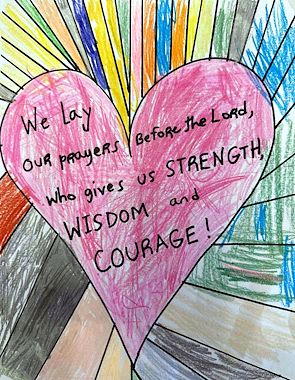 We Lay
OUR prayers Before the Lord,
who gives us STRENGTH,
WISDOM and
COURAGE!